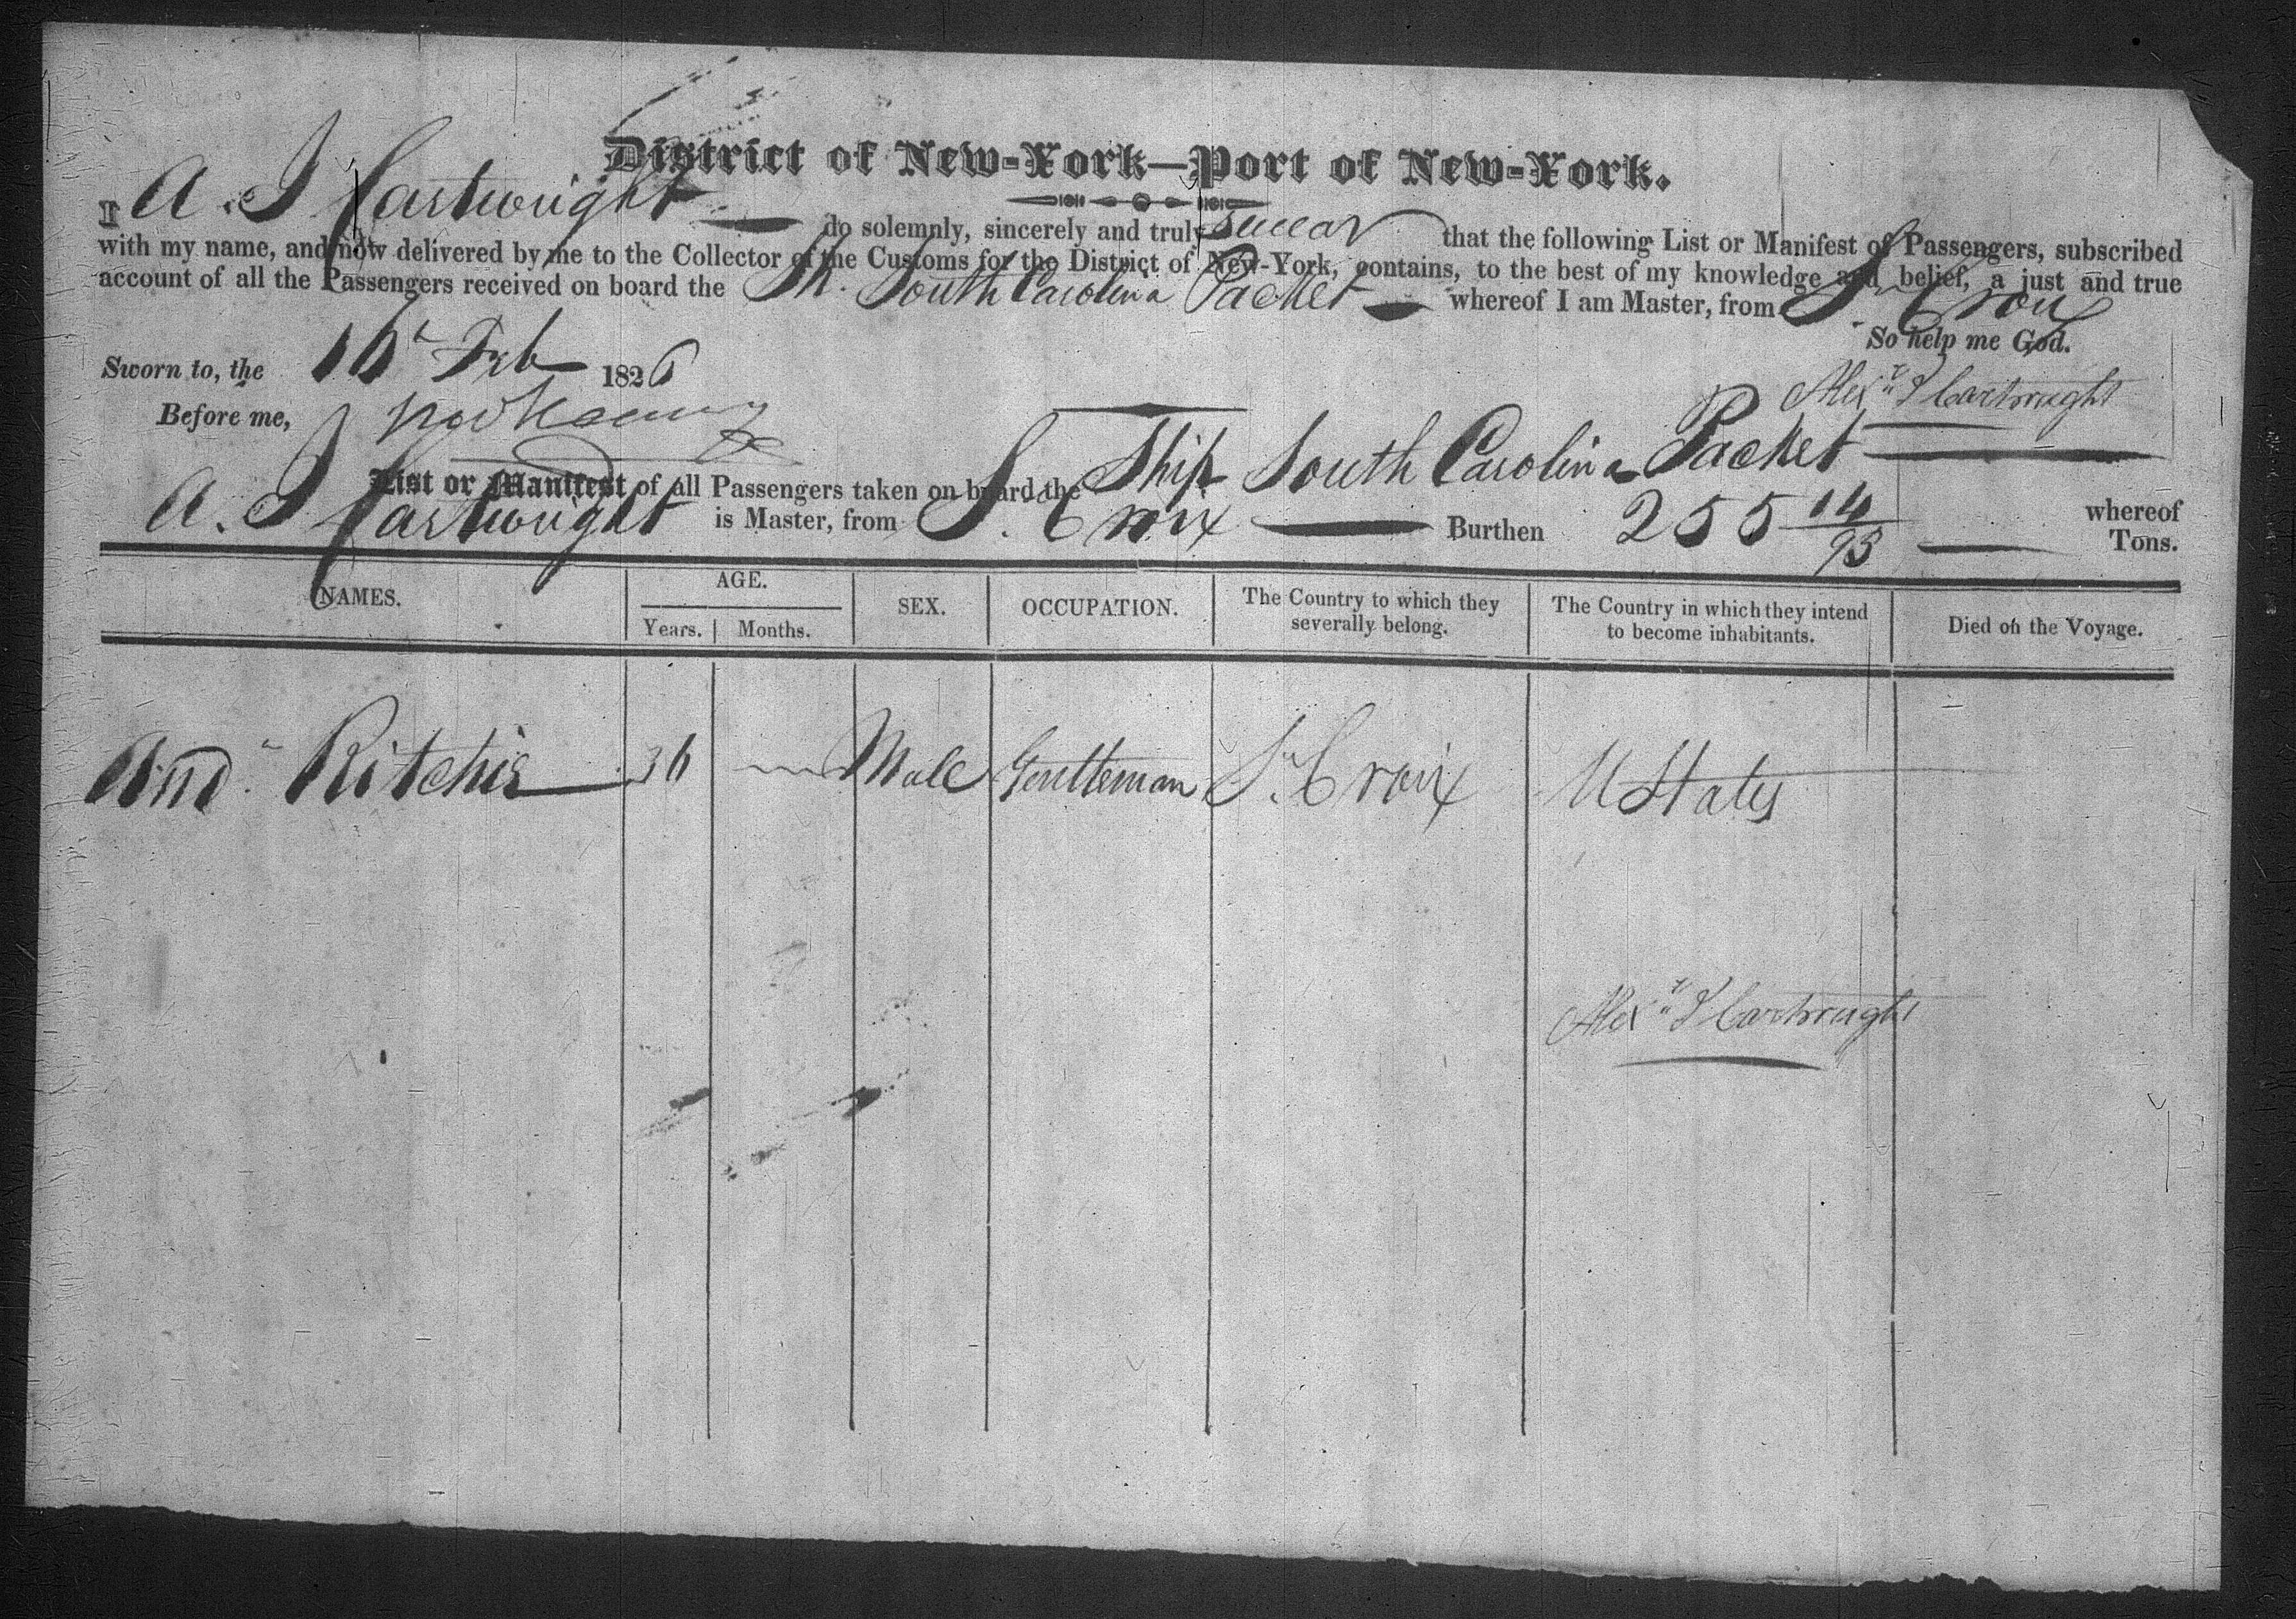 District of New-York—Port of New-York.
I A. J Cartwright do solemnly, sincerely and truly swear that the following List or Manifest of Passengers, subscribed
with my name, and now delivered by me to the Collector of the Customs for the District of New-York, contains, to the best of my knowledge and belief, a just and true
account of all the Passengers received on board the Sh. South Carolina Packet whereof I am Master, from St Croix
So help me God.
Sworn to, the 16th Feb 1826
Alexr J Cartwright
Before me,
List or Manifest of all Passengers taken on board the Ship South Carolina Packet whereof
A. J Cartwright is Master, from St. Croix Burthen 255 14/95 Tons.
NAMES. AGE. Years. Months. SEX. OCCUPATION. The Country to which they severally belong. The Country in which they intend to become inhabitants. Died on the Voyage.
And. Ritchie 36 Male Gentleman St. Croix U States
Alexr J Cartwright